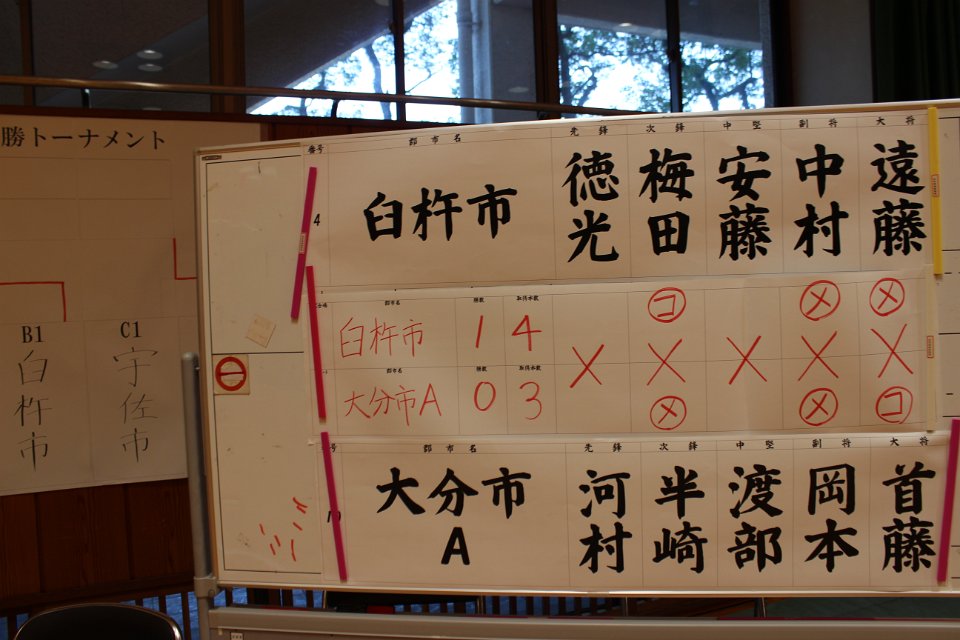 勝トーナメント
B1
臼杵市
C1
宇佐市
番号 郡市名 先鋒 次鋒 中堅 副将 大将
4 臼杵市 徳光 梅田 安藤 中村 遠藤
郡市名 勝数 取得本数
臼杵市 1 4 コ メ メ
郡市名 勝数 取得本数
大分市A 0 3 メ メ コ
号 郡市名 先鋒 次鋒 中堅 副将 大将
大分市A 河村 半崎 渡部 岡本 首藤